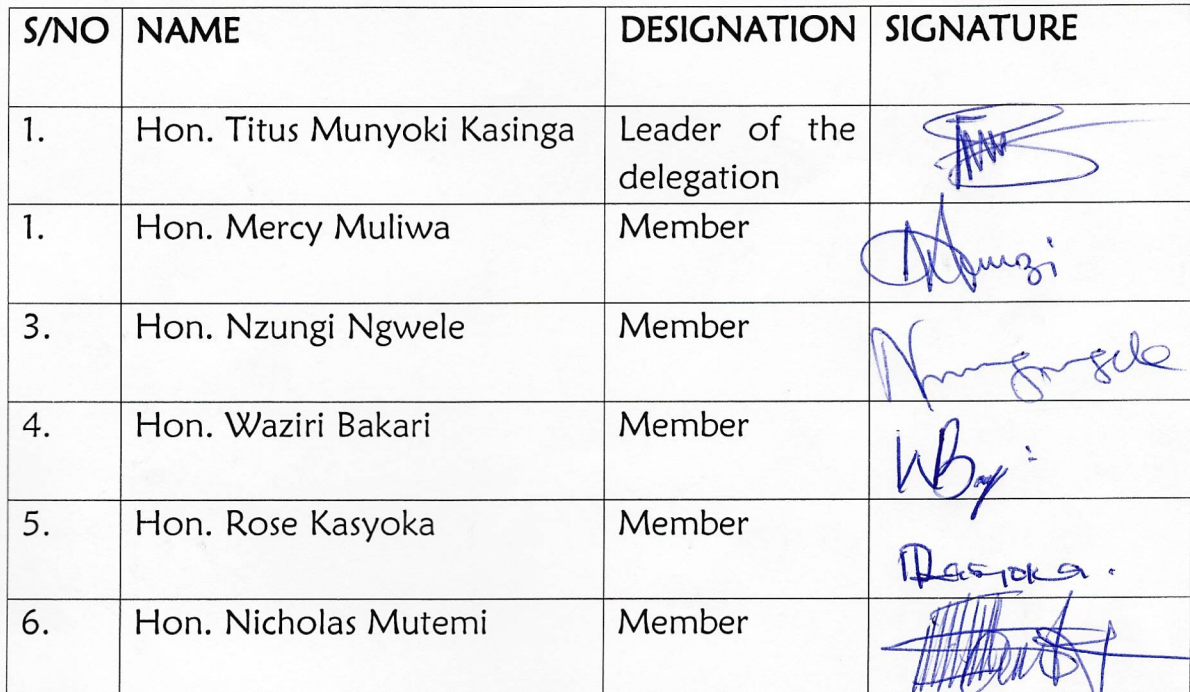 S/NO NAME DESIGNATION SIGNATURE
1. Hon. Titus Munyoki Kasinga Leader of the
delegation
1. Hon. Mercy Muliwa Member
3. Hon. Nzungi Ngwele Member
4. Hon. Waziri Bakari Member
5. Hon. Rose Kasyoka Member
6. Hon. Nicholas Mutemi Member